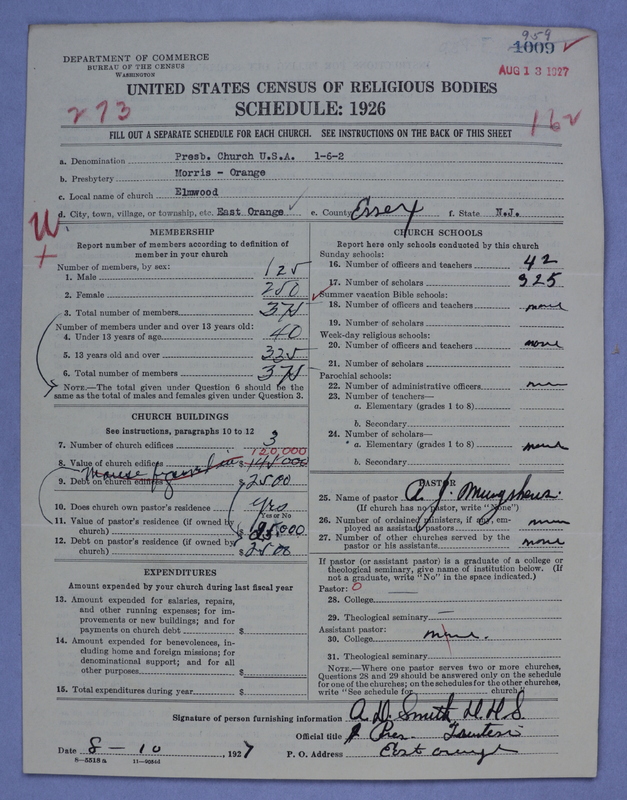 959
1009 ✓
AUG 13 1927
DEPARTMENT OF COMMERCE
BUREAU OF THE CENSUS
WASHINGTON
UNITED STATES CENSUS OF RELIGIOUS BODIES
SCHEDULE: 1926
273
162
FILL OUT A SEPARATE SCHEDULE FOR EACH CHURCH. SEE INSTRUCTIONS ON THE BACK OF THIS SHEET
a. Denomination Presb. Church U.S.A. 1-6-2
b. Presbytery Morris - Orange
c. Local name of church Elmwood
d. City, town, village, or township, etc. East Orange e. County Essex f. State N.J.
W.
+
MEMBERSHIP
Report number of members according to definition of
member in your church
Number of members, by sex:
1. Male 125
2. Female 250
3. Total number of members 375
Number of members under and over 13 years old:
4. Under 13 years of age 40
5. 13 years old and over 335
6. Total number of members 375
NOTE.—The total given under Question 6 should be the
same as the total of males and females given under Question 3.
CHURCH BUILDINGS
See instructions, paragraphs 10 to 12
7. Number of church edifices 3
120,000
8. Value of church edifices $ 145000
9. Debt on church edifices $ 2500
10. Does church own pastor's residence yes
Yes or No
11. Value of pastor's residence (if owned by
church) $ 25,000
12. Debt on pastor's residence (if owned by
church) $ 2500
EXPENDITURES
Amount expended by your church during last fiscal year
13. Amount expended for salaries, repairs,
and other running expenses; for im-
provements or new buildings; and for
payments on church debt $
14. Amount expended for benevolences, in-
cluding home and foreign missions; for
denominational support; and for all
other purposes $
15. Total expenditures during year $
CHURCH SCHOOLS
Report here only schools conducted by this church
Sunday schools:
16. Number of officers and teachers 42
17. Number of scholars 325
Summer vacation Bible schools:
18. Number of officers and teachers none
19. Number of scholars
Week-day religious schools:
20. Number of officers and teachers none
21. Number of scholars
Parochial schools:
22. Number of administrative officers none
23. Number of teachers—
a. Elementary (grades 1 to 8)
b. Secondary
24. Number of scholars—
* a. Elementary (grades 1 to 8) none
b. Secondary
PASTOR
25. Name of pastor A. J.
(If church has no pastor, write "None")
26. Number of ordained ministers, if any, em-
ployed as assistant pastors none
27. Number of other churches served by the
pastor or his assistants none
If pastor (or assistant pastor) is a graduate of a college or
theological seminary, give name of institution below. (If
not a graduate, write "No" in the space indicated.)
Pastor: 0
28. College —
29. Theological seminary —
Assistant pastor:
30. College none.
31. Theological seminary
NOTE.—Where one pastor serves two or more churches,
Questions 28 and 29 should be answered only on the schedule
for one of the churches; on the schedules for the other churches,
write "See schedule for church."
Signature of person furnishing information A. D. Smith D.D.S.
Official title Pres. Trustees
Date 8-10, 1927 P. O. Address East Orange
8—5518 a 11—9034d